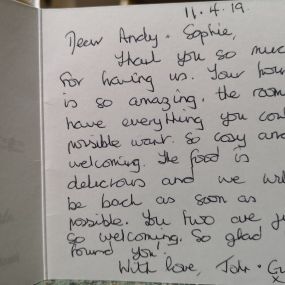 11.4.19.
Dear Andy + Sophie,
Thank you so muc
for having us. Your hou
is so amazing. the room
have everything you cou
possible want. So cosy and
welcoming. The food is
delicious and we wil
be back as soon as
possible. You two are ju
so welcoming. So glad
found you!
With love, John +
x